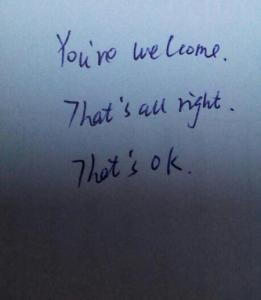 You're welcome.
That's all right.
That's ok.